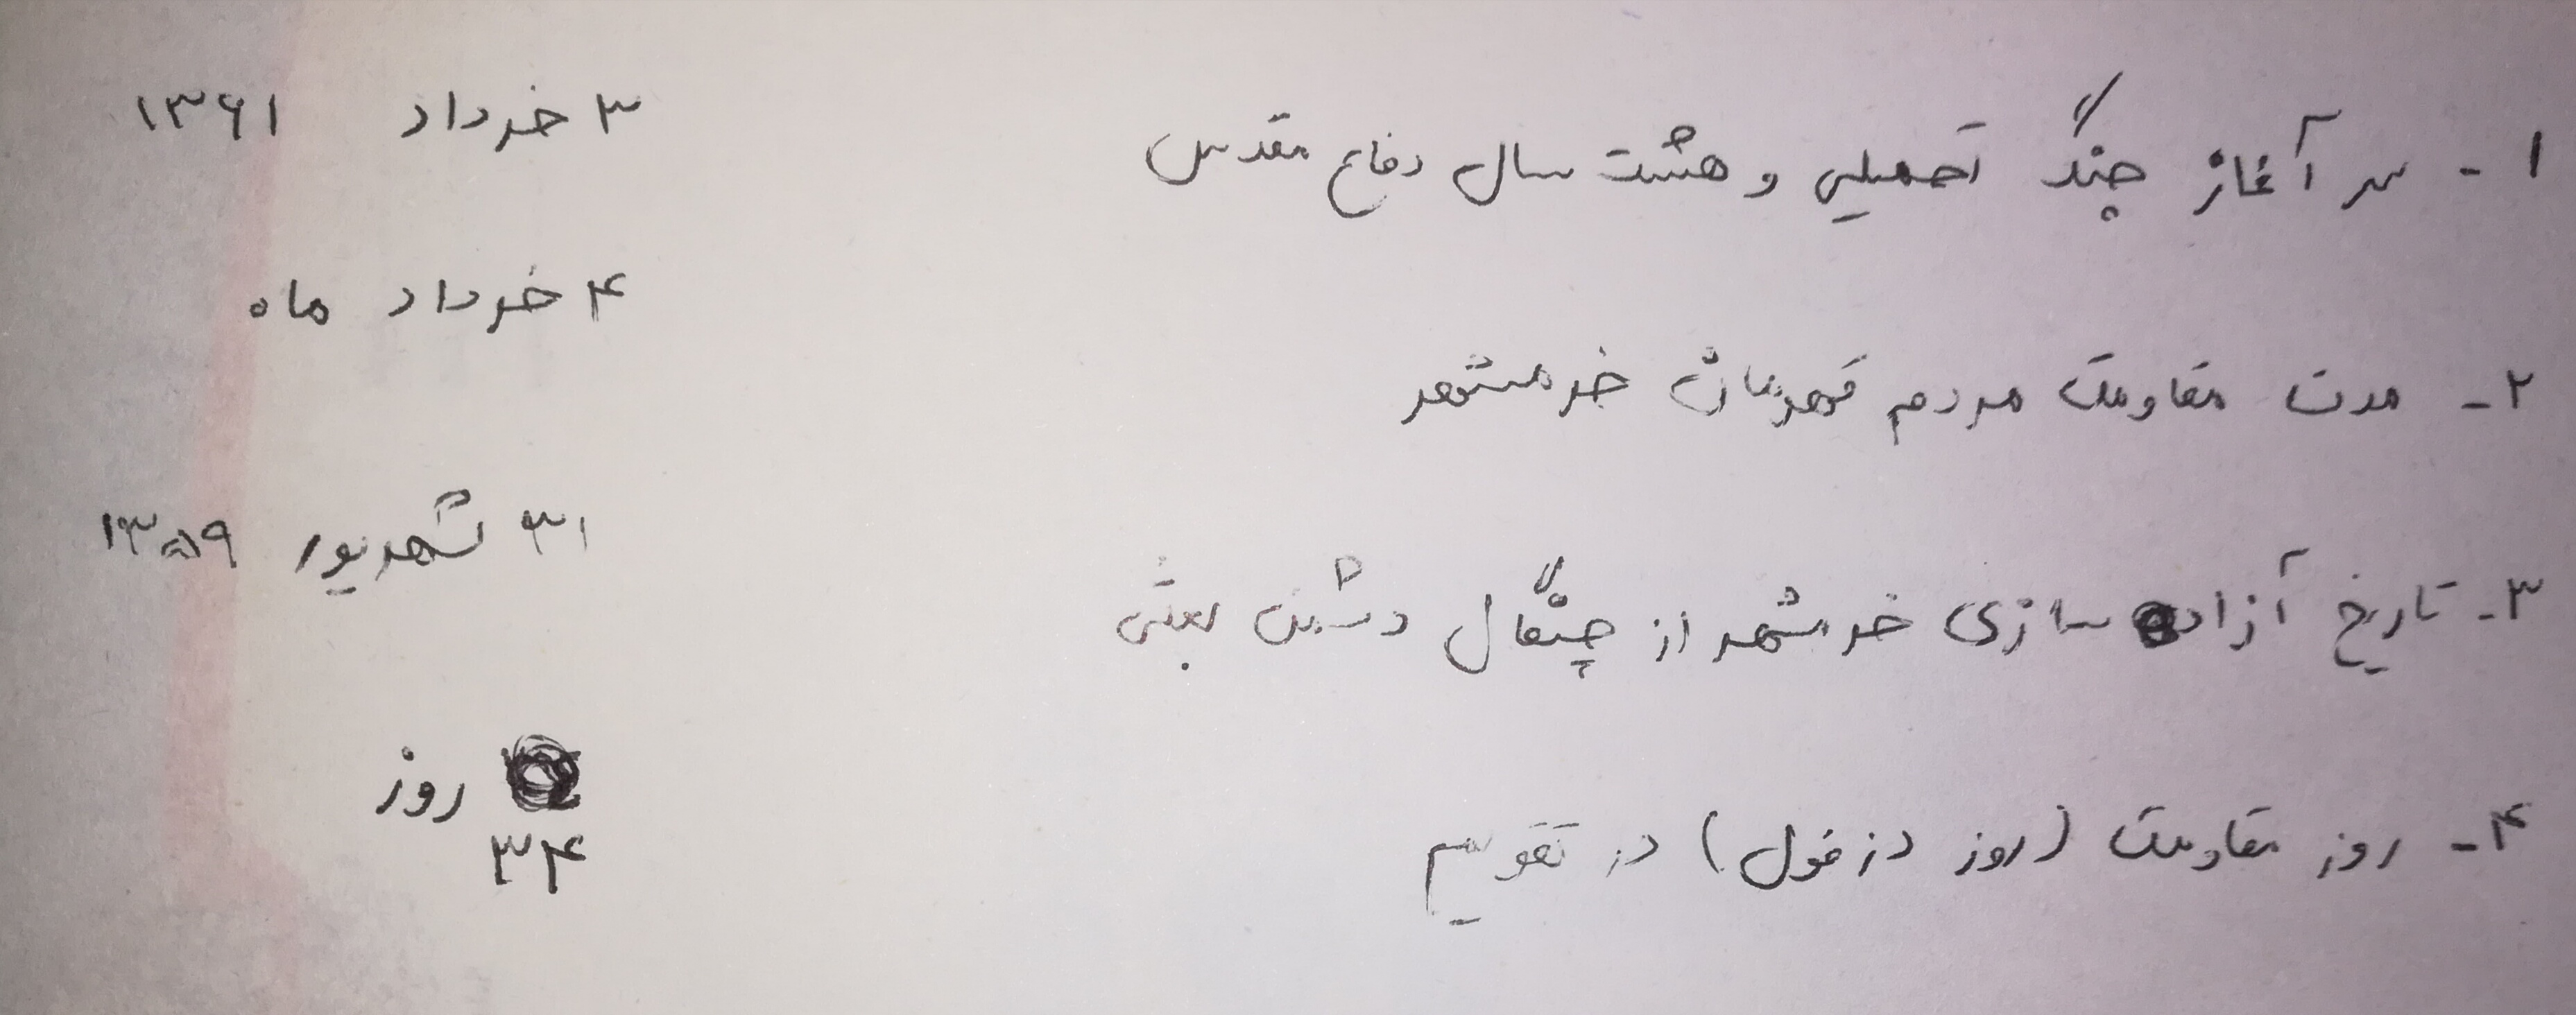 ۱- سر آغاز جنگ تحمیلی و هشت سال دفاع مقدس
۳ خرداد ۱۳۶۱
۴ خرداد ماه
۲- مدت مقاومت مردم قهرمان خرمشهر
۳۱ شهریور ۱۳۵۹
۳- تاریخ آزاد سازی خرمشهر از چنگال دشمن بعثی
روز
۳۴
۴- روز مقاومت (روز دزفول) در تقویم